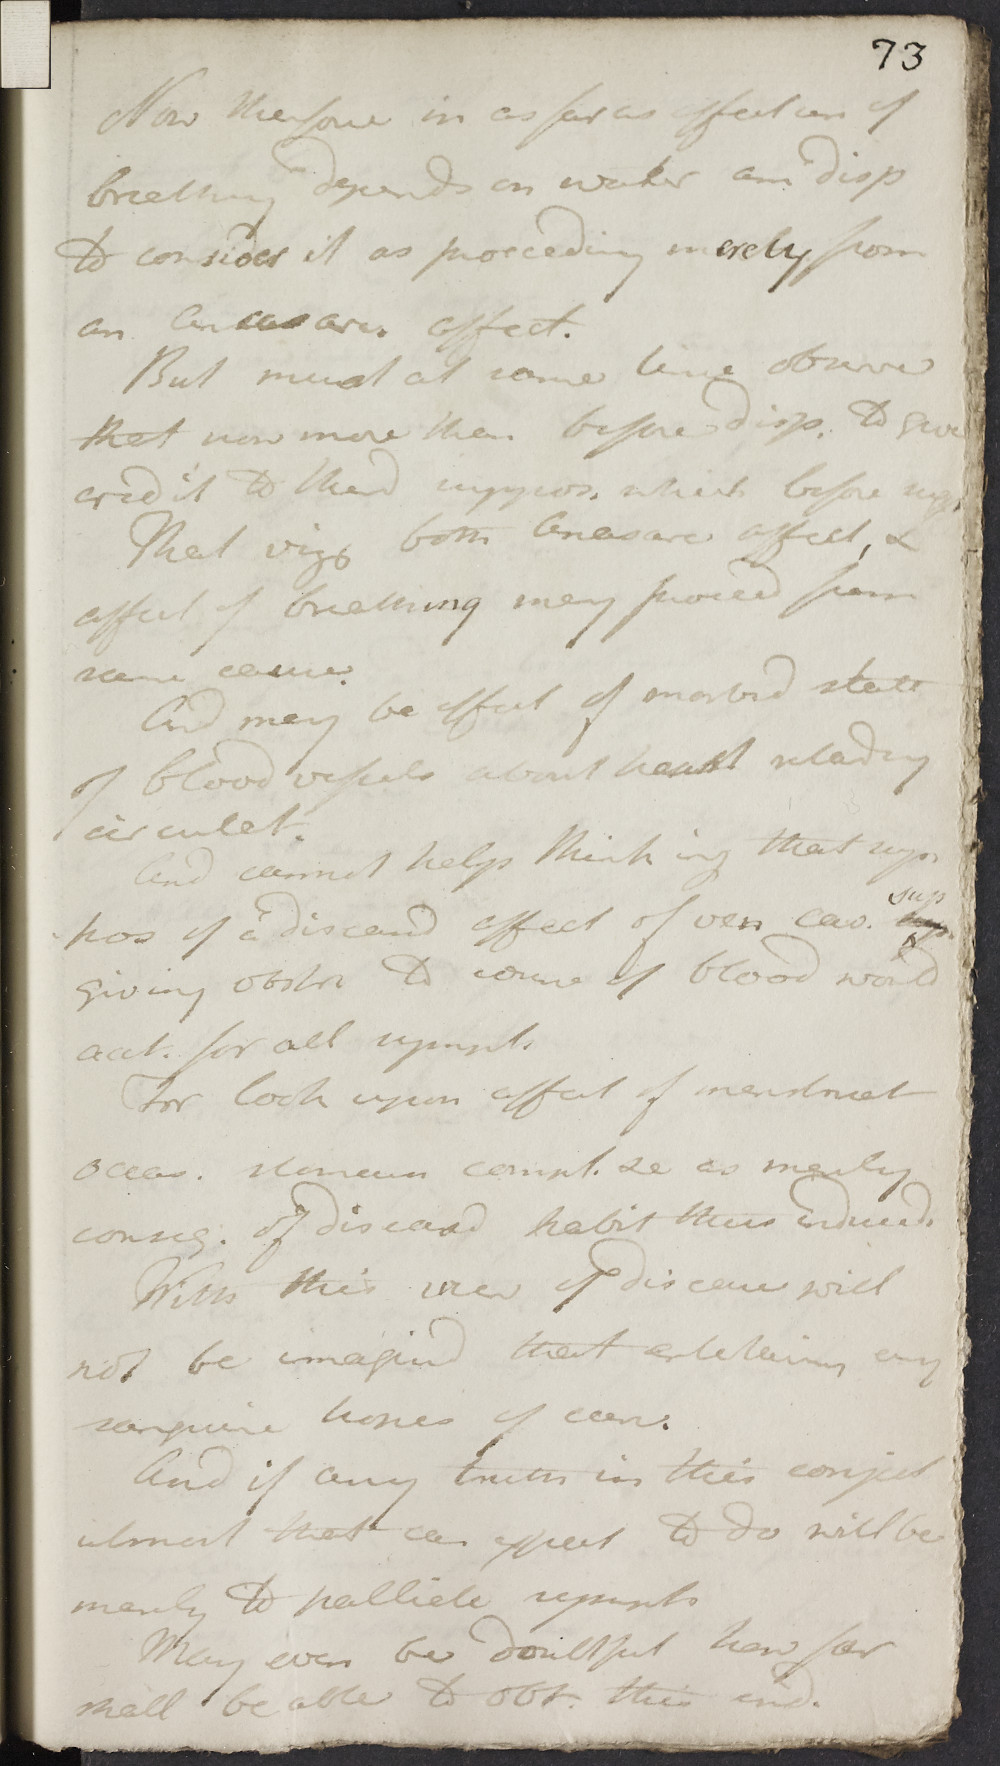 73
Now therefore in as far as affection of
breathing depends on water am disp
to consider it as proceeding merely from
an anasarc. affect.
But must at same time observe
that now more than before disp. to give
credit to third suppos. which before sugg.
That viz both anasarc affect, &
affect of breathing may proceed from
same cause.
And may be effect of morbid state
of blood vessels about heart retarding
circulat.
And cannot help thinking that sup
pos of a diseased affect of ven cav. sup
giving obstr to course of blood would
acct. for all sympt.
For look upon affect of menstruat
occas. stomach compl. &c as merely
conseq. of diseased habit thus induced.
With this view of disease will
not be imagined that entertain any
sanguine hopes of cure.
And if any truth in this conject
utmost that can expect to do will be
merely to palliate sympts
May even be doubtful how far
shall be able to obt. this end.